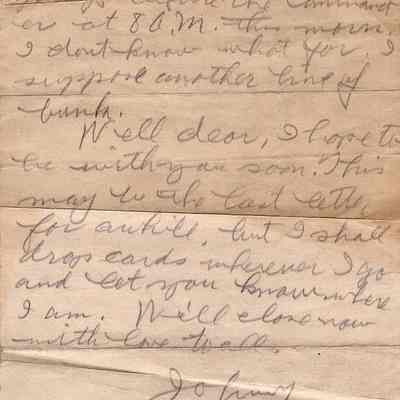 before the Command
er at 8 A.M. this morn.
I dont know what for. I
suppose another line of
bunk.
Well dear, I hope to
be with you soon. This
may be the last letter
for awhile, but I shall
drop cards wherever I go
and let you know where
I am. Will close now
with love to all.
Johnny